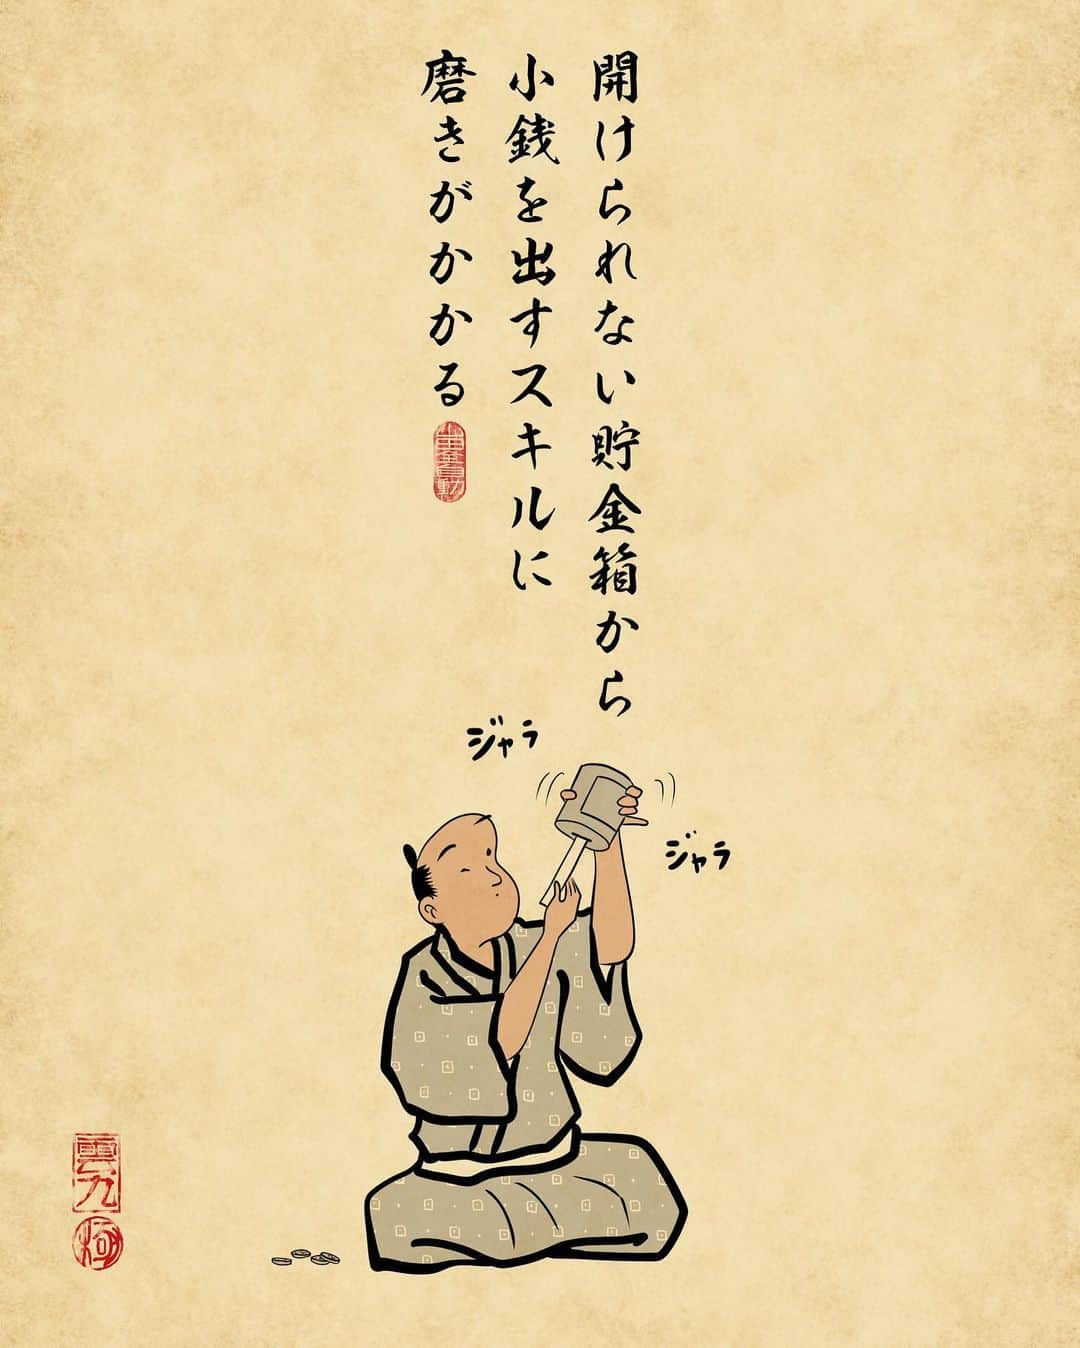 開けられない貯金箱から
小銭を出すスキルに
磨きがかかる
ジャラ
ジャラ